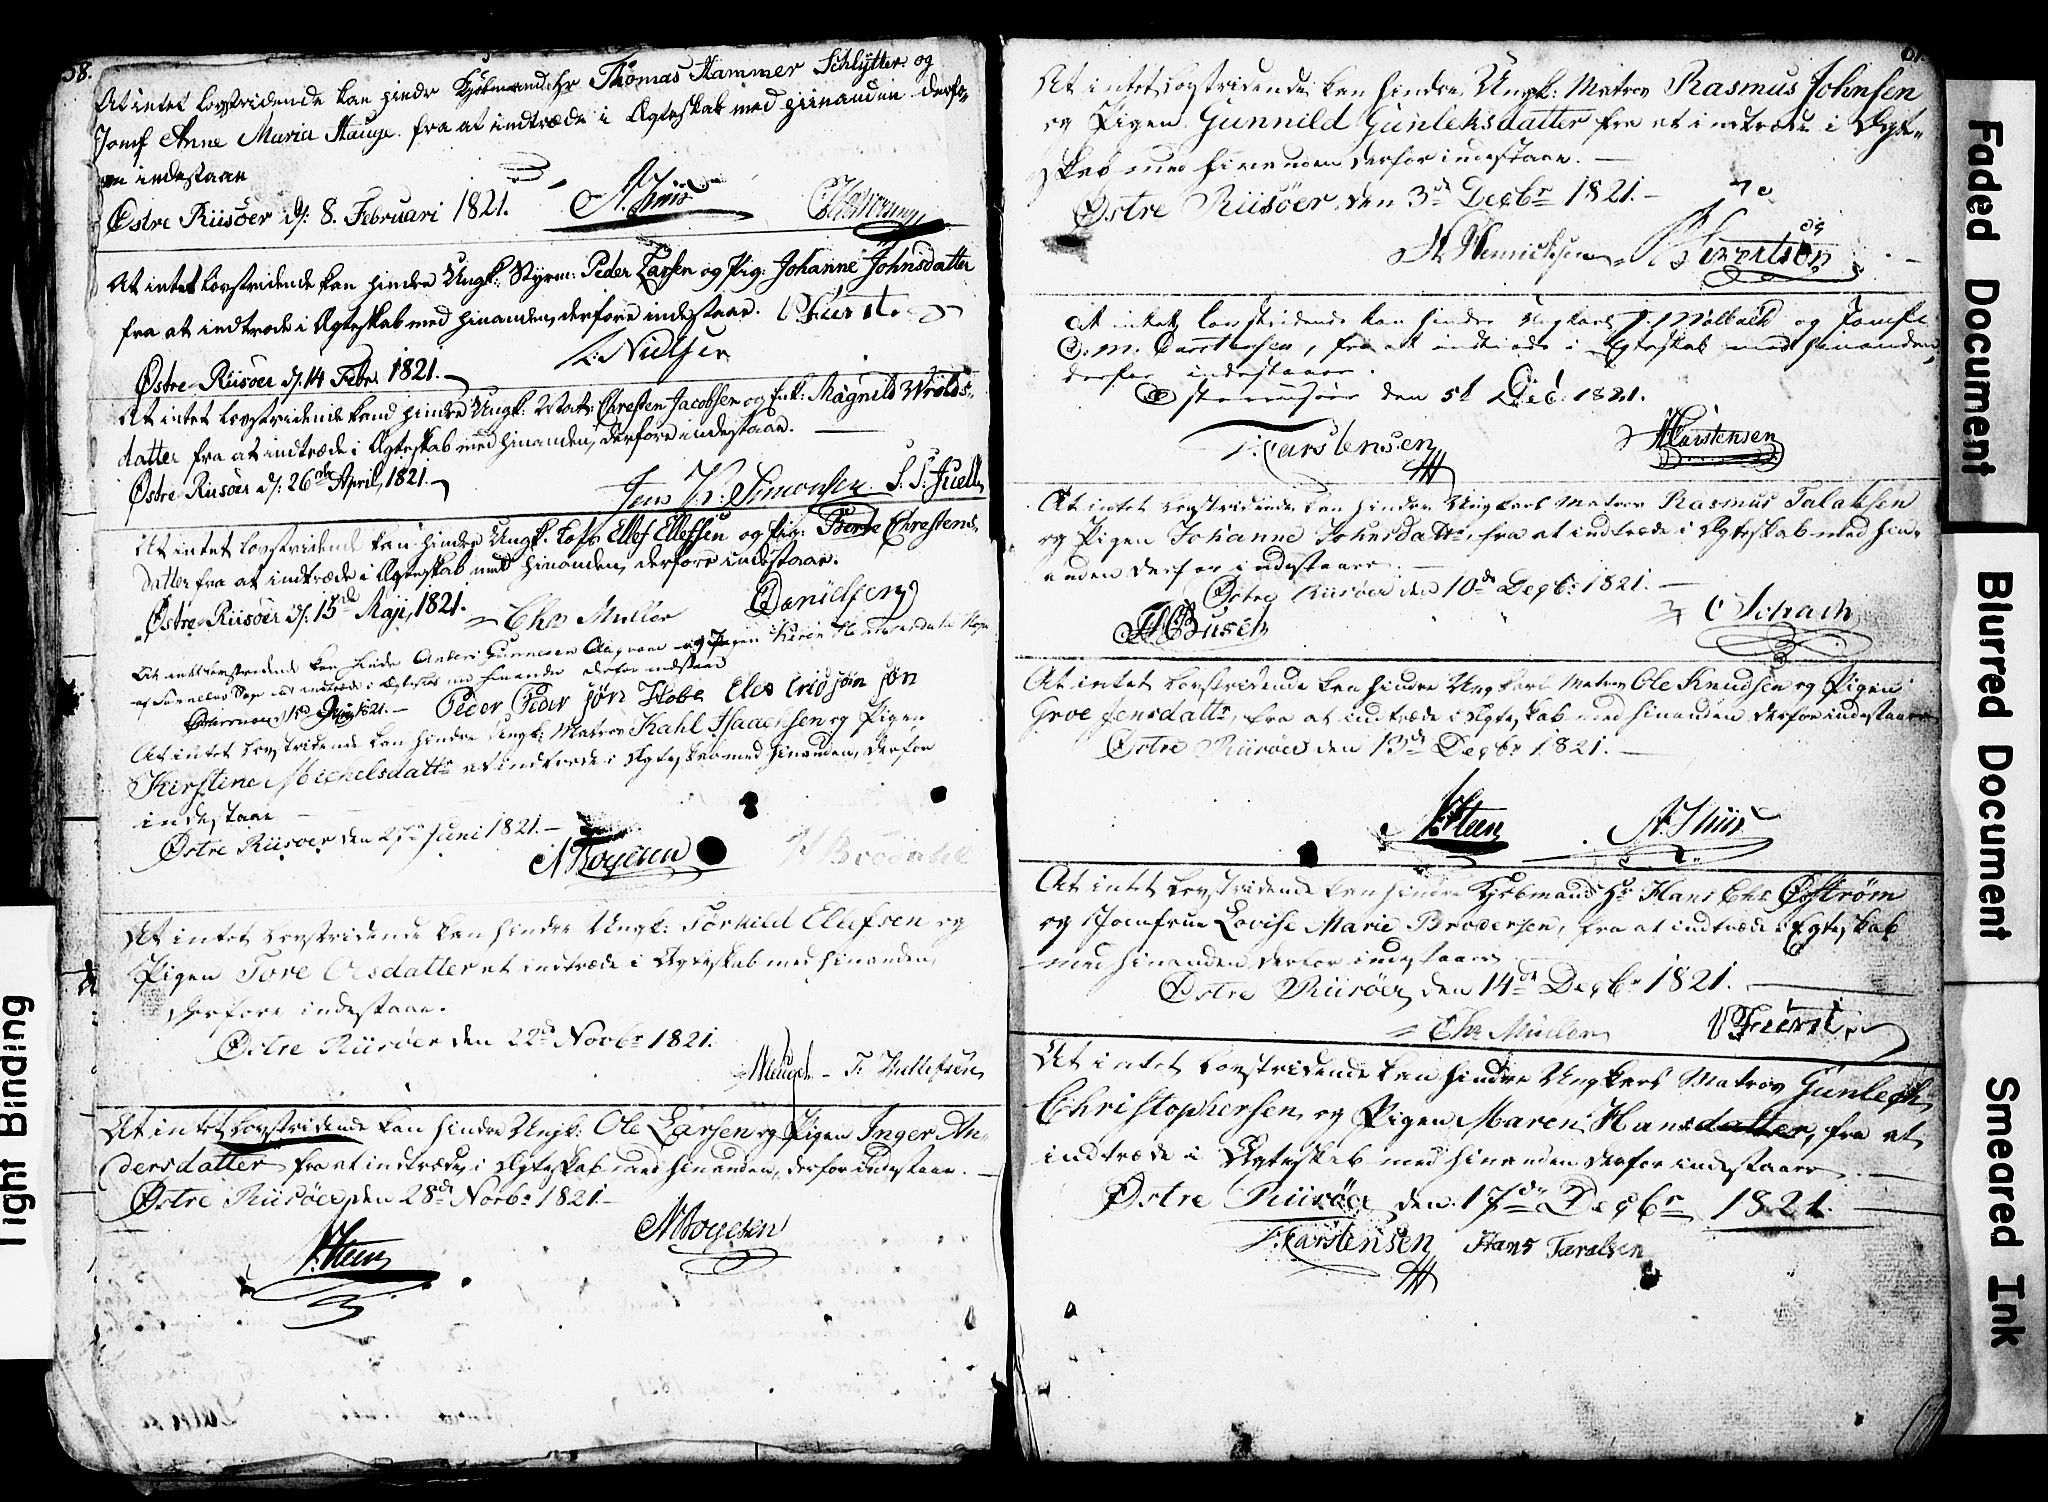 58.
At intet lovstridende kan hindr Kjøbmand Hr Thomas Hammer Schlytter og
Jomf Anne Maria Hauge fra at indtræde i Ægteskab med hiinanden derfo-
re indestaae
Østre Riisøer d: 8. Februari 1821.
At intet lovstridende kan hindre Ungk: Styrm: Peder Larsen og Pig: Johanne Johnsdatter
fra at indtræde i Ægteskab med hinanden, derfore indestaar. Fürst
Østre Riisøer d: 14 Febr. 1821. L: Nielsen
At intet lovstridende kand hindre Ungk: Matr: Chresten Jacobsen og Enk: Magnild Wrolds-
datter fra at indtræde i Ægteskab med hinanden, derfore indestaar.
Østre Riisøer d: 26 April, 1821. Jens Simonsen S. S. Juell
At intet lovstridende kan hindre Ungk: Lods Ellef Ellefsen og Pig: Berte Chrestens-
datter fra at indtræde i Ægteskab med hinanden, derfore indestaar.
Østre Riisøer d: 15de Maji, 1821. Chr Muller Danielsen
At intet lovstridende kan hindre Anders Gunnesen og Pigen Karen
indtræde i Ægteskab med hinanden derfor indestaae
1821. Peder Peder søn Stobe
At intet lovstridende kan hindre Ungk: Matros Kahl Isaachsen og Pigen
Kirstine Michelsdattr at indtræde i Ægteskab med hinanden, derfor
indestaae
Østre Riisøer den 27de Juni 1821.
N Boyesen H Brodahl
At intet lovstridende kan hindre Ungk: Torkild Ellefsen og
Pigen Tore Olsdatter at indtræde i Ægteskab med hinanden,
derfore indestaae.
Østre Riisøer den 22de Novbr 1821.
At intet lovstridende kan hindre Ungk: Ole Larsen og Pigen Inger An-
dersdatter fra at indtræde i Ægteskab med hinanden, derfor indestaae.
Østre Riisøer den 28de Novbr 1821
Steen N Boyesen
At intet lovstridende kan hindre Ungk: Matros Rasmus Johnsen
og Pigen Gunnild Gunleksdatter fra at indtræde i Ægte-
skab med hinanden derfor indestaae.
Østre Riisøer den 3de Decbr 1821.
Hennichsen
At intet lovstridende kan hindre Ungkarl J. Molback og Jomfr
D. M. Carstensen, fra at indtræde i Egteskab med hinanden,
derfor indestaaer.
Østerriisøer den 5t Dec: 1821.
T: Carstensen H Carstensen
At intet lovstridende kan hindre Ungkarl Matros Rasmus Talaksen
og Pigen Johanne Johnsdattr, fra at indtræde i Ægteskab med hin-
anden derfor indestaaer
Østre Riisøer den 10de Decbr 1821.
H Busch C Schach
At intet lovstridende kan hindre Ungkarl Matros Ole Knudsen og Pigen
Groe Jensdattr, fra at indtræde i Ægteskab med hinanden derfor indestaaer
Østre Riisøer den 13de Decbr 1821.
Steen
At intet lovstridende kan hindre Kjøbmand Hr Hans Chr Østrøm
og Jomfrue Lovise Marie Brodersen, fra at indtræde i Egteskab
med hinanden derfor indestaaer
Østre Riisøer den 14de Decbr 1821.
Chr Muller Fürst
At intet lovstridende kan hindre Ungkarl Matros Gunlech
Christophersen og Pigen Maren Hansdatter, fra at
indtræde i Ægteskab med hinanden derfor indestaaer
Østre Riisøer den 17de Decbr 1821.
T: Carstensen Hans Taralsen
Tight Binding
Faded Document
Blurred Document
Smeared Ink